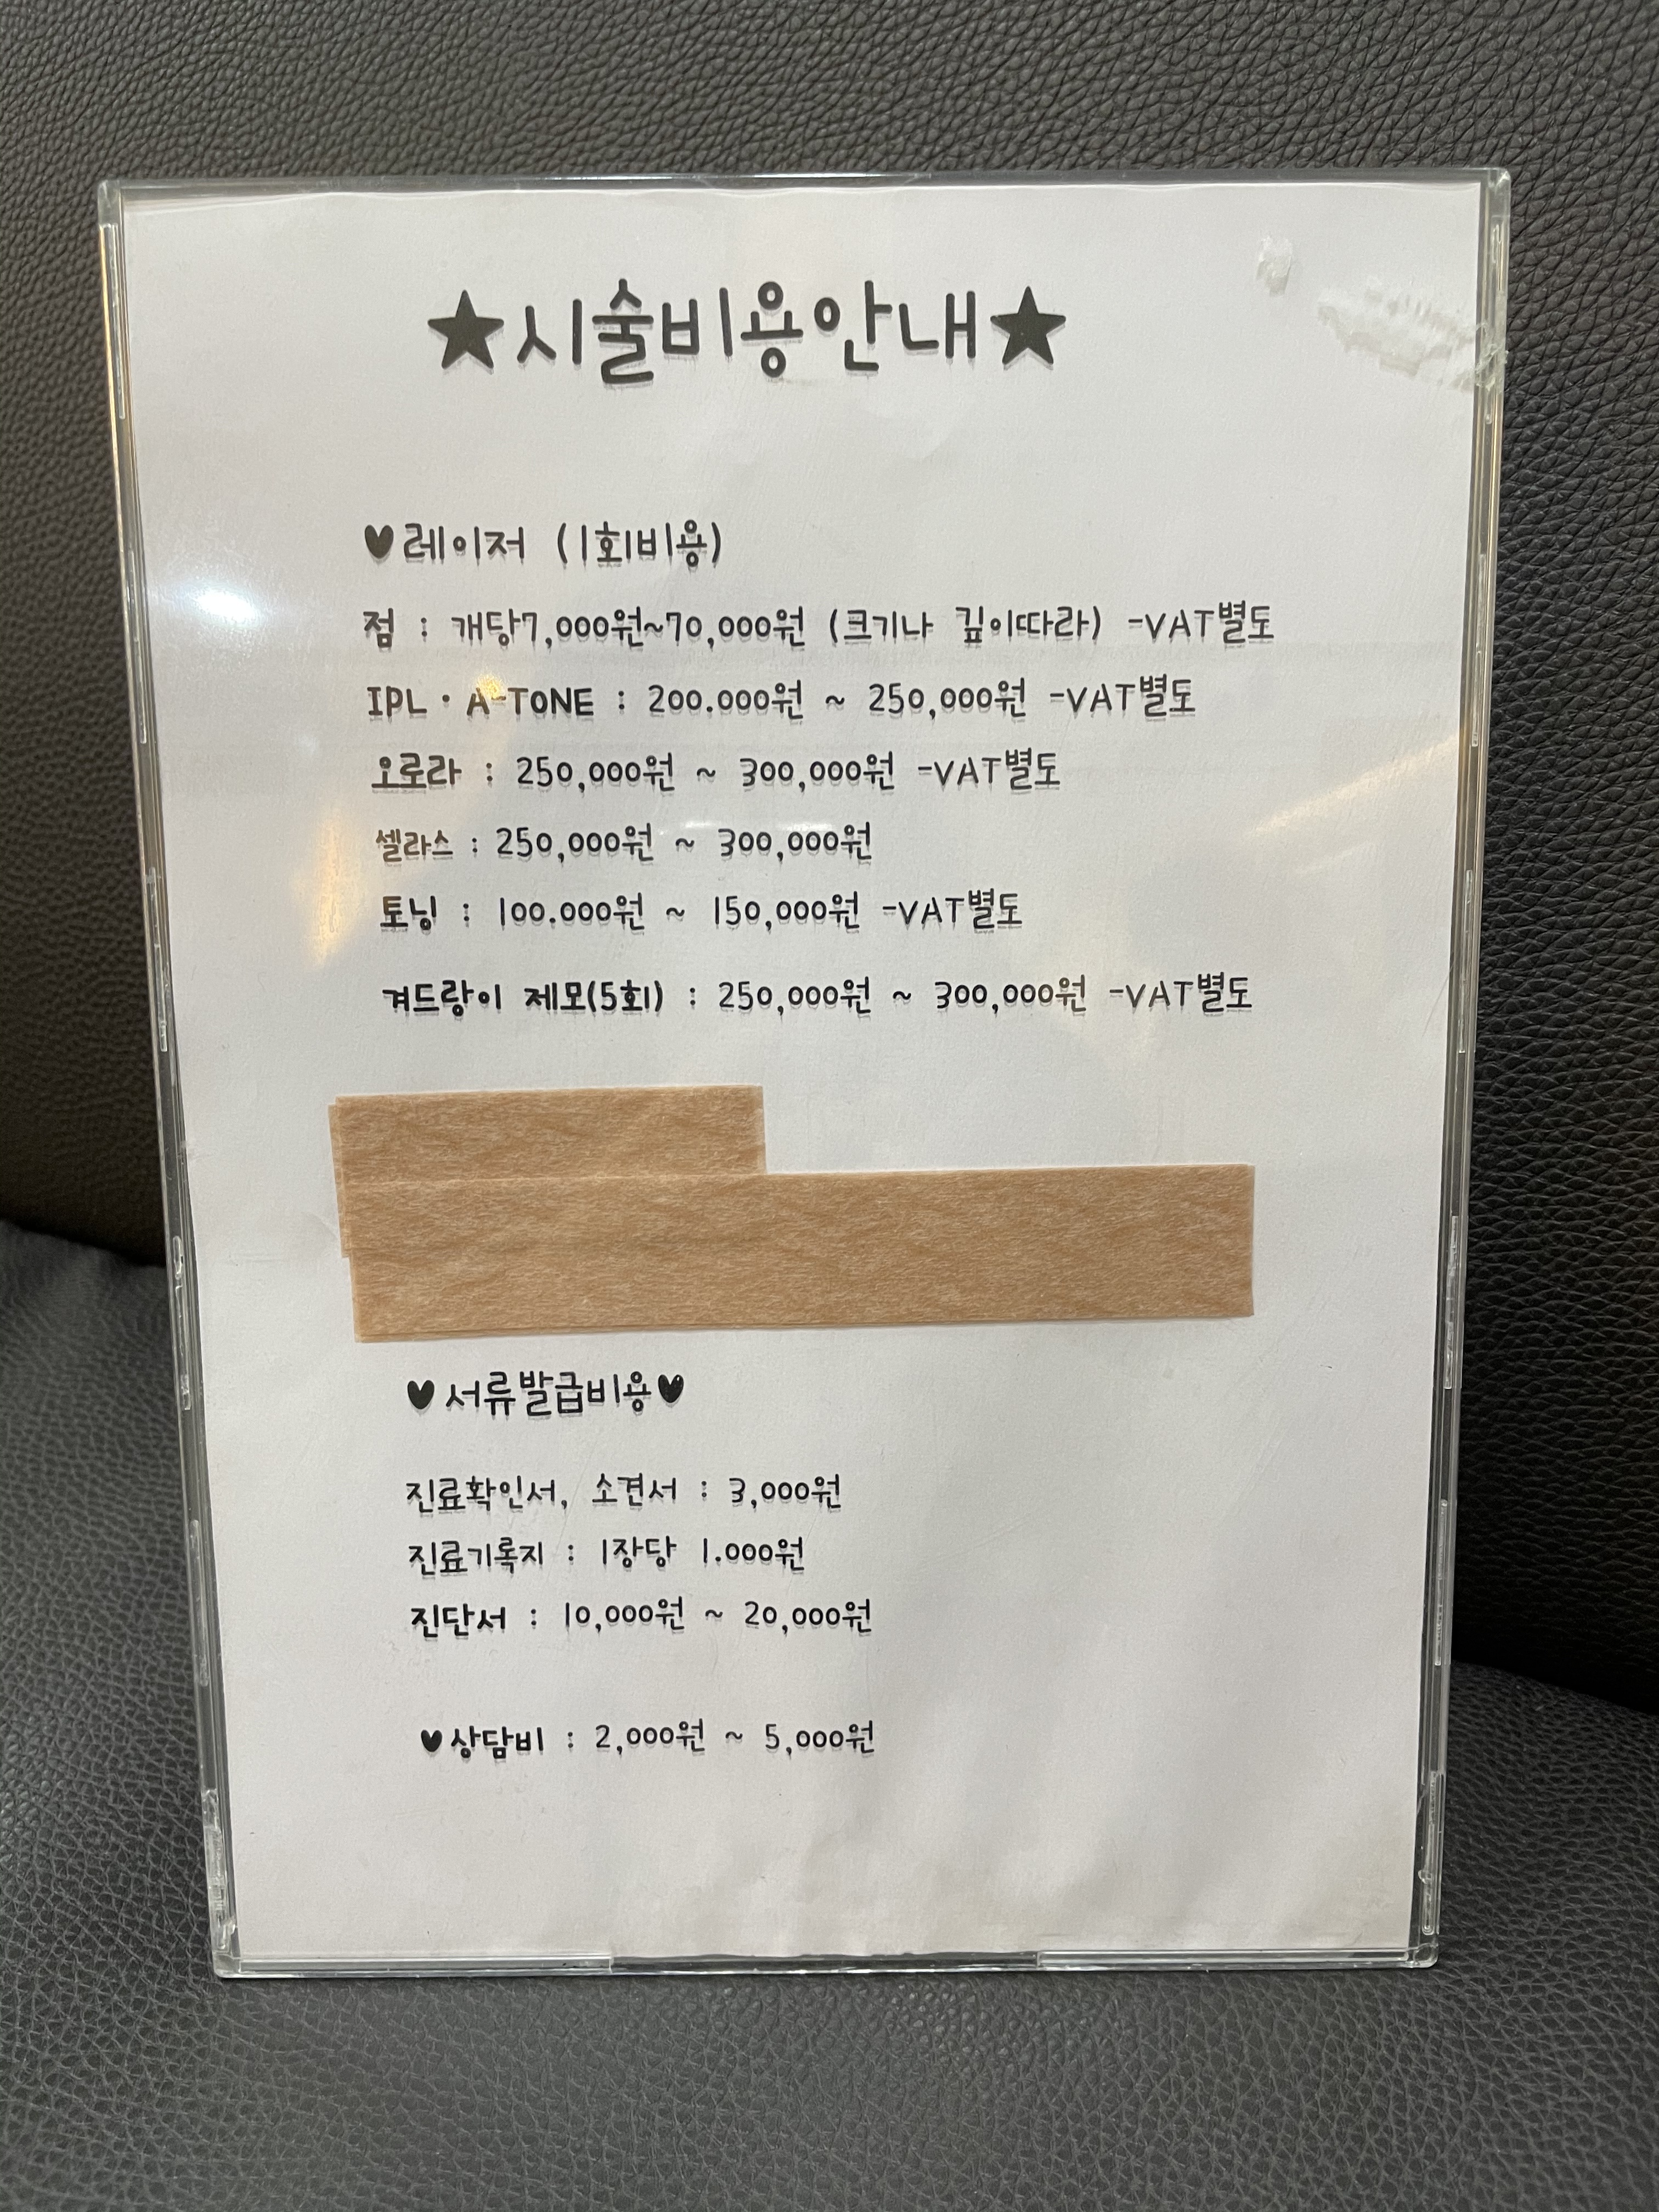 ★시술비용안내★
♥레이저 (1회비용)
점 : 개당7,000원~70,000원 (크기나 깊이따라) -VAT별도
IPL · A-TONE : 200.000원 ~ 250,000원 -VAT별도
오로라 : 250,000원 ~ 300,000원 -VAT별도
셀라스 : 250,000원 ~ 300,000원
토닝 : 100.000원 ~ 150,000원 -VAT별도
겨드랑이 제모(5회) : 250,000원 ~ 300,000원 -VAT별도
♥서류발급비용♥
진료확인서, 소견서 : 3,000원
진료기록지 : 1장당 1.000원
진단서 : 10,000원 ~ 20,000원
♥상담비 : 2,000원 ~ 5,000원